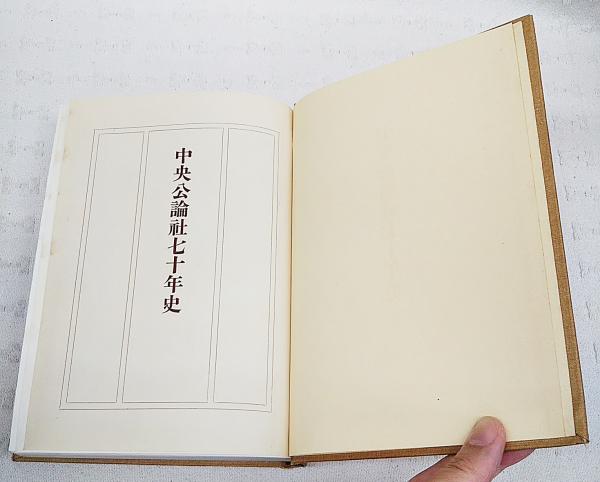 中央公論社七十年史